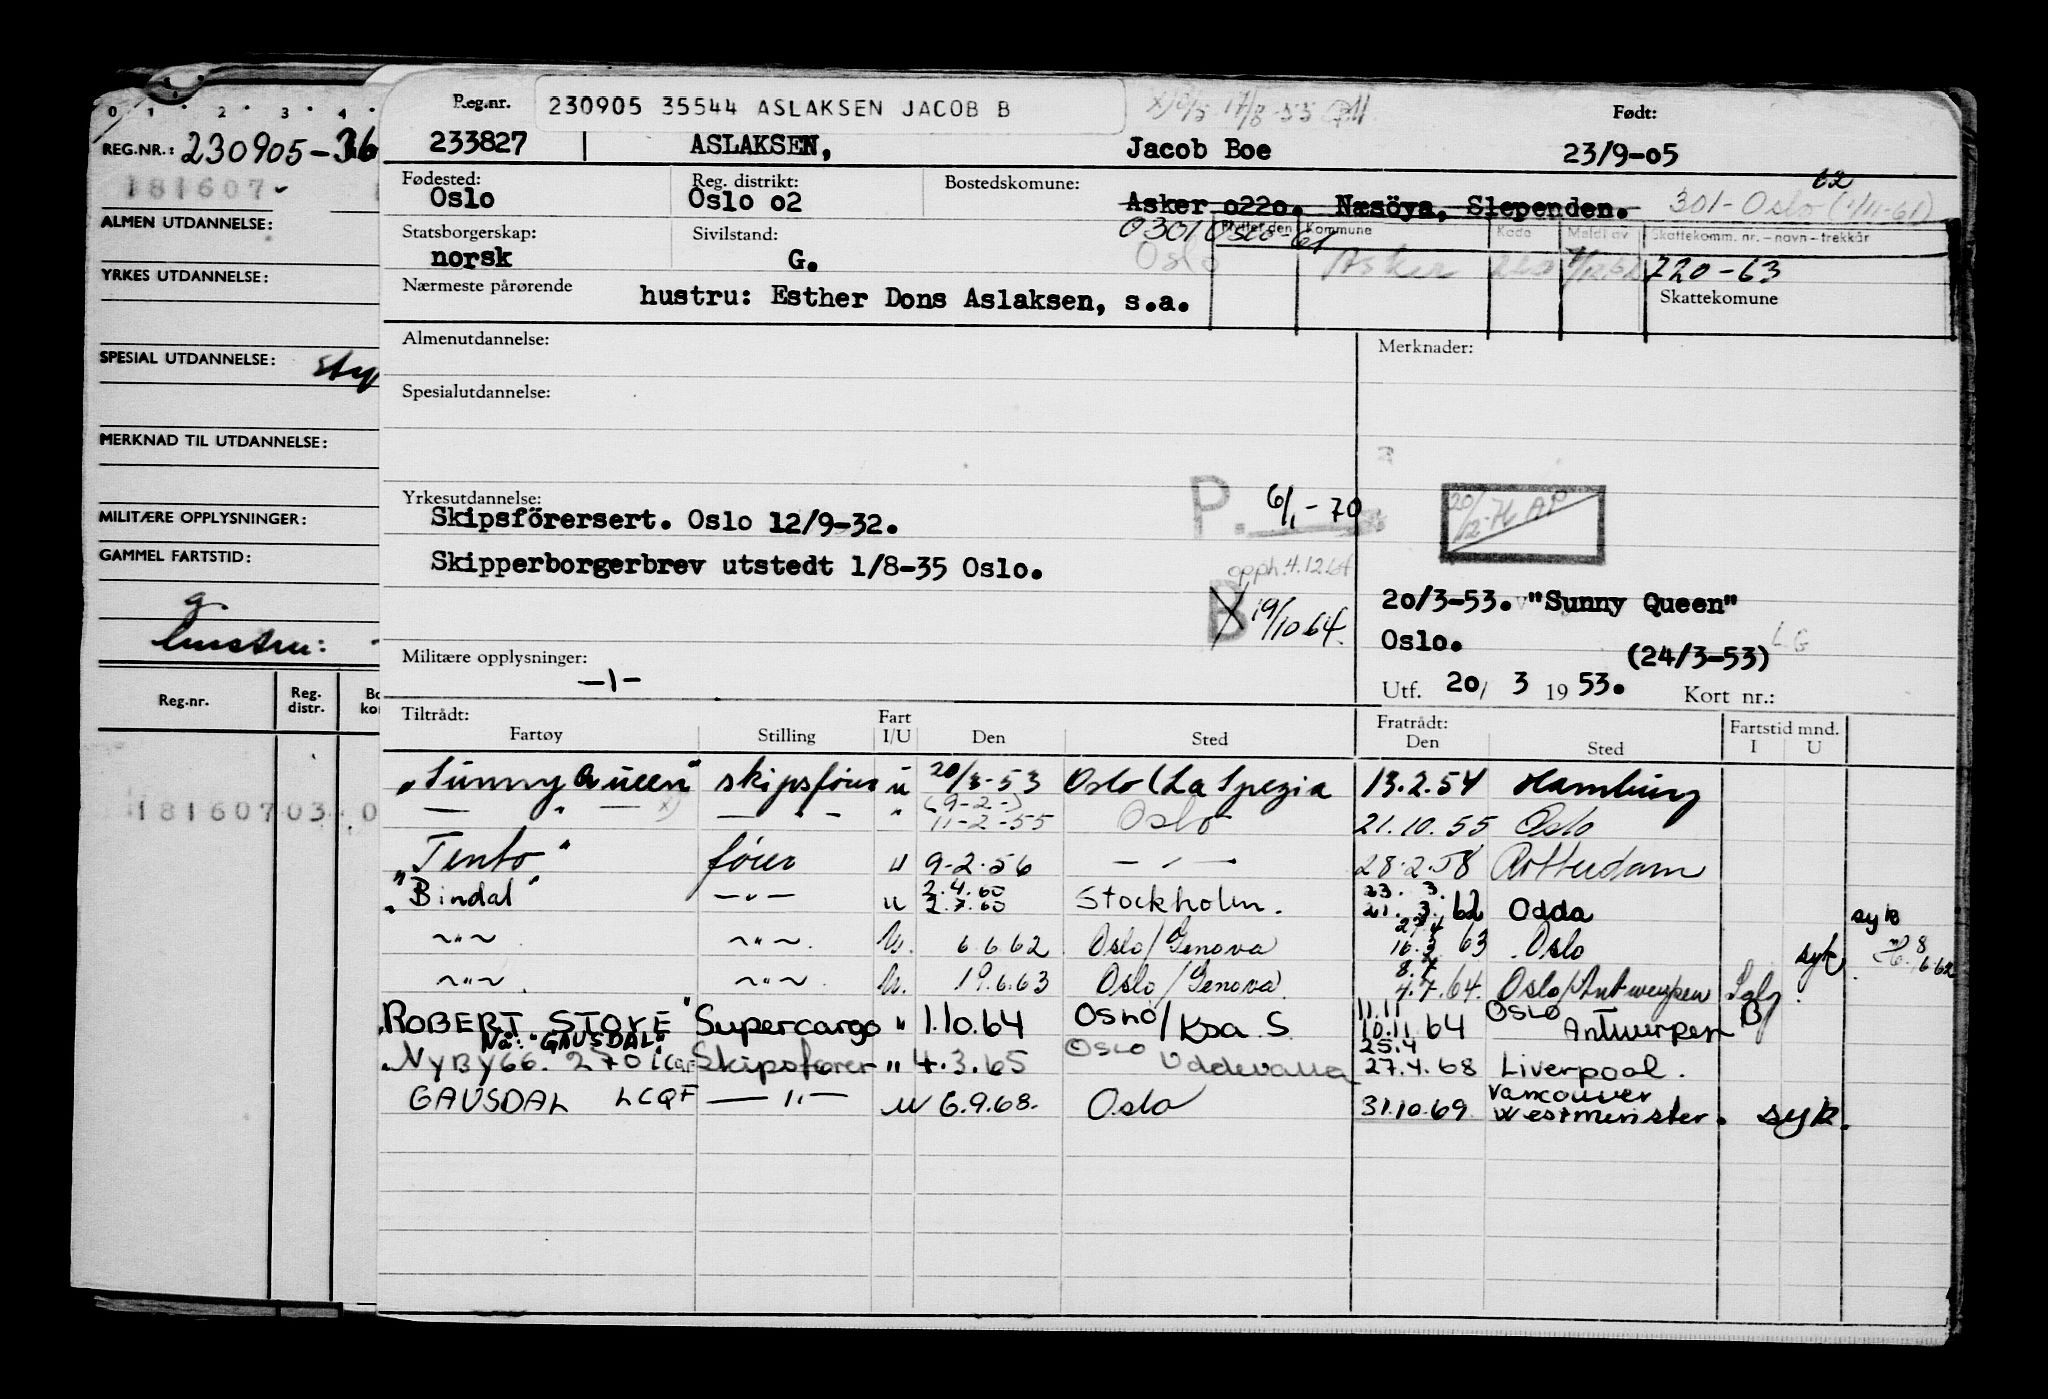 0 1 2 3 4
REG.NR.: 230905-36
181607
ALMEN UTDANNELSE:
YRKES UTDANNELSE:
SPESIAL UTDANNELSE:
MERKNAD TIL UTDANNELSE:
MILITÆRE OPPLYSNINGER:
GAMMEL FARTSTID:
g.
hustru:
Reg.nr. Reg. distr. Bo kon
181607 03 0
Reg.nr. 230905 35544 ASLAKSEN JACOB B Født:
233827 ASLAKSEN, Jacob Boe 23/9-05
Fødested: Reg. distrikt: Bostedskomune: 62
Oslo Oslo 02 Asker 0220. Næsöya, Slependen. 301-Oslo (1/11-61)
Statsborgerskap: Sivilstand: 0301 Oslo-61 Flyttet den Kommune Kode Meldt av Skattekomm. nr. – navn – trekkår
norsk G. Oslo Asker 220 720-63
Nærmeste pårørende hustru: Esther Dons Aslaksen, s.a. Skattekomune
Almenutdannelse: Merknader:
Spesialutdannelse:
Yrkesutdannelse: P. 6/1-70
Skipsförersert. Oslo 12/9-32. 20/12-76 AP
Skipperborgerbrev utstedt 1/8-35 Oslo. opph. 4.12.64
B 19/10 64. 20/3-53. "Sunny Queen"
Oslo. (24/3-53) LG
Militære opplysninger: -1-
Utf. 20/ 3 1953. Kort nr.:
Tiltrådt: Fartøy Stilling Fart I/U Den Sted Fratrådt: Den Sted Fartstid mnd. I U
"Sunny Queen" skipsfører u 20/3-53 Oslo (La Spezia 13.2.54 Hamburg
— " — x) — " — " (9-2-) 11-2-55 Oslo 21.10.55 Oslo
"Tento" fører u 9-2-56 — " — 28.2.58 Rotterdam
"Bindal" —"— u 2.4.60 2.7.60 Stockholm. 23. 3. 21. 3. 62 Odda syk
~"~ ~"~. U. 6.6.62 Oslo/Genova 27.4 16.3 63 Oslo syk
~"~ ~"~. U. 19.6.63 Oslo/Genova 8.7 4.7.64. Oslo/Antwerpen Salg.
"ROBERT STOVE" Supercargo " 1.10.64 OSLO/Koa S 11.11 10.11.64 OSLO Antwerpen B
Nå: "GAUSDAL"
"NYBY66. 270 LCQF Skipsfører " 4.3.65 OSLO Uddevalla 25.4 27.4.68 Liverpool.
GAUSDAL LCQF — " — u 6.9.68. Oslo 31.10.69 Vancouver Westminister. syk.